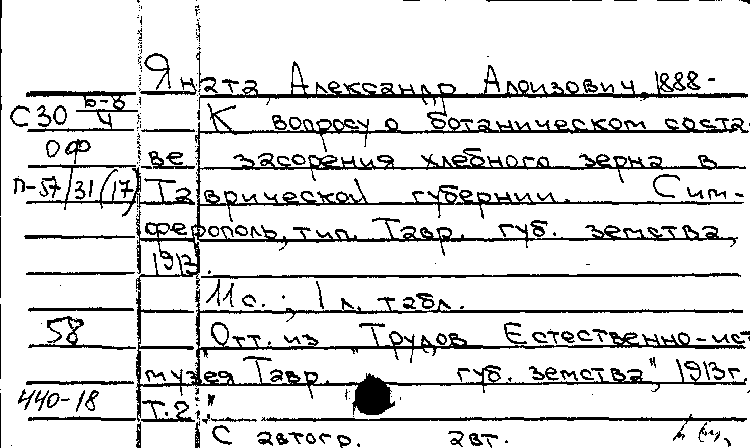 Яната, Александр Алоизович, 1888-
С30 Б-8/4 К вопросу о ботаническом соста-
ОФ ве засорения хлебного зерна в
П-57/31(17) Таврической губернии. Сим-
ферополь, тип. Тавр. губ. земства,
1913.
11 с.; 1 л. табл.
58 Отт. из "Трудов Естественно-ист
музея Тавр. губ. земства", 1913г.,
440-18 т. 2."
С автогр. авт.